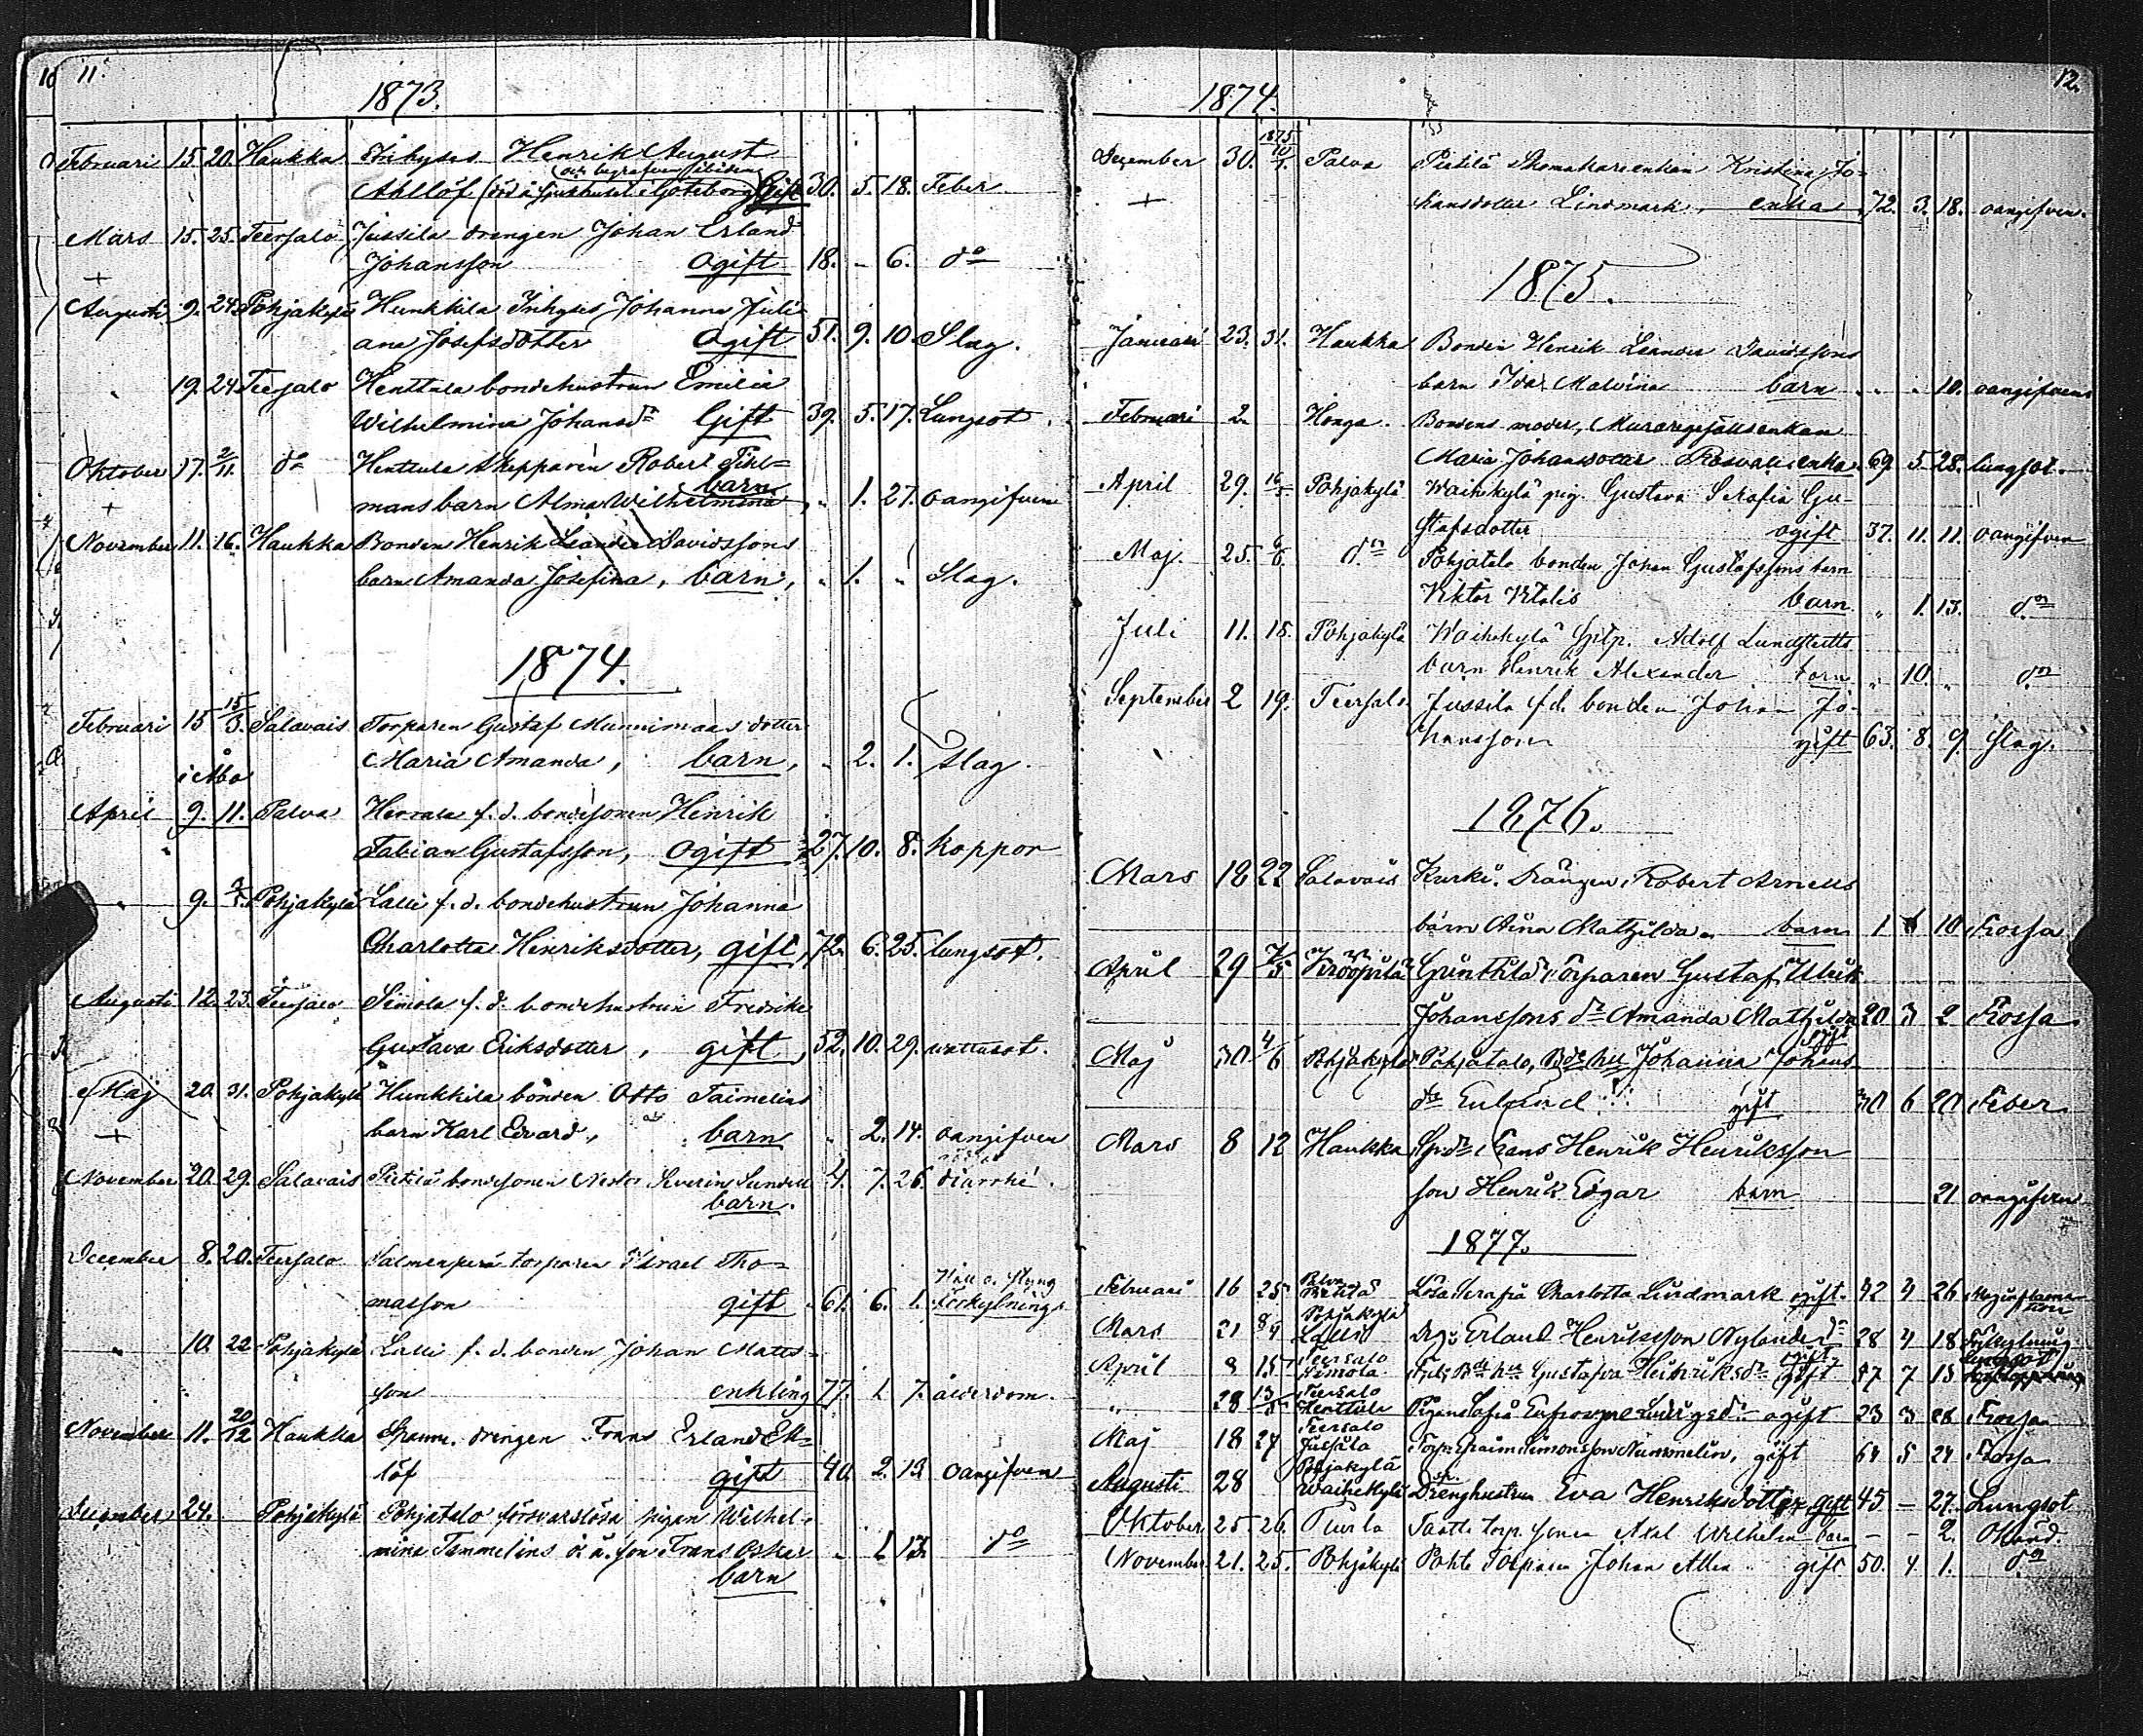 11.
1873.
Februari 15 20. Haukka Inhyses Henrik August
och begrafven ibidem
Ahllöf (död å sjukhuset i Göteborg) Gift 30. 5. 18. Feber
Mars 15. 25. Teersalo Jussila drengen Johan Erland
+ Johansson Ogift 18. - 6. do
Augusti 9. 24. Pohjakylä Hunkkila Inhyses Johanna Juli-
ana Josefsdotter Ogift 51. 9. 10. Slag.
" 19. 24 Teersalo Henttula bondehustrun Emilia
Wilhelmina Johansdr Gift 39. 5. 17. Lungsot.
Oktober 17. 2/11. do Henttula skepparen Robert Pihl=
+ mans barn Alma Wilhelmina barn „ 1. 27. oangifven
November 11. 16. Haukka Bonden Henrik Leander Davidssons
barn Amanda Josefina, barn, „ 1. „ Slag.
1874.
Februari 15 15/3. Salavais Torparen Gustaf Munnimaas dotter
Maria Amanda, barn, „ 2. 1. Slag.
i Åbo
April 9. 11. Palva Herrala f. d. bondesonen Henrik
Fabian Gustafsson, ogift 27. 10. 8. koppor
" 9. Pohjakylä Lalli f. d. bondehustrun Johanna
Charlotta Henriksdotter, gift, 72. 6. 25. lungsot.
Augusti 12. 23. Teersalo Simola f. d. bondehustrun Fredrika
Gustava Eriksdotter, gift, 52. 10. 29. wattusot.
Maj 20. 31. Pohjakylä Hunkkila bonden Otto Taimelins
+ barn Karl Edvard, barn „ 2. 14. oangifven
November 20. 29. Salavais Pietilä bondesonen Nestor Severin Sundell 4. 7. 26. diarrhé.
barn.
December 8. 20. Teersalo Salmenperä torparen Israel Tho=
masson gift 61. 6. 1. Håll o. styng förkylning.
" 10. 22 Pohjakylä Lalli f. d. bonden Johan Matts=
son enkling 77. 1. 7. ålderdom.
November 11. 20/12 Haukka drengen Frans Erland Ek=
löf gift 40. 2. 13. oangifven
December 24. Pohjakylä Pohjatalo försvarslösa pigan Wilhel-
mina Tammelins o. ä. son Frans Oskar „ 1. 17. do
barn
12.
1874.
December 30. 1875 10/1. Palva Pietilä Skomakareenkan Kristina Jo=
+ hansdotter Lindmark, enka 72. 3. 18. oangifven.
1875.
Januari 23. 31. Haukka Bonden Henrik Leander Davidssons
barn Ida Malvina barn „ „ 10. oangifven
Februari 2. Honga. Bondens moder, Muraregesällsenkan
Maria Johansdotter enka 69. 5 28. lungsot.
April 29. 16/5 Pohjakylä Waihekylä pig. Gustava Serafia Gu-
stafsdotter ogift 37. 11. 11. oangifven
Maj. 25. 6/6. do Pohjatalo bonden Johan Gustafssons barn
Viktor Vitalis barn „ 1. 13. do
Juli 11. 18. Pohjakylä Waihekylä Adolf Lundstedts
barn Henrik Alexander barn „ 10. „ do
September 2 19. Teersalo Jussila f. d. bonden Johan Jo-
hansson gift 63. 8. 9. slag.
1876.
Mars 18 22 Salavais Kurki Drängen Robert Arnells
barn Aina Mathilda barn 1 6 10 Frossa
April 29 7/5 Torparen Gustaf Ulrik
Johanssons dr Amanda Mathilda ogift 20 3 2 Frossa
Maj 30 4/6 Pohjakylä Pohjatalo, Bdehu Johanna Johans-
dr gift 30 6 20 Feber
Mars 8 12 Haukka Frans Henrik Henriksson
son Henrik Edgar barn 21 oangifven
1877.
Februari 16 25 Palva Pietilä Lösa Serafia Charlotta Lindmark ogift. 42 4 26
Mars 21 8/4 Pohjakylä Lalli Drg. Erland Henriksson Nylander 28 4 18 Förkylning
April 3 15 Teersalo Simola Gustafva Henriksdr gift 47 7 13
" 28 13/5 Teersalo Henttula Pigan Sofia ogift 23 3 28 Frossa
Maj 18 27 Teersalo Jussila Torp. Efraim Simonsson Nummelin, gift 64 5 24 Frossa
Augusti 28 Pohjakylä Waihekylä Drenghustrun Eva Henriksdotter gift 45 - 27. Lungsot
Oktober 25. 26. torp. sonen Axel Wilhelm barn - - 2. Okänd.
November 21. 25. Pohjakylä Torparen Johan gift 50. 4. 1. do